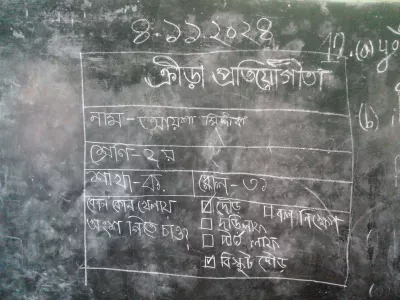 ৪.১১.২০২৪
ক্রীড়া প্রতিযোগীতা
নাম - আয়শা সিদ্দীকা
শ্রেণি - ২য়
শাখা - ক. রোল - ৩১
কোন কোন খেলায় অংশ নিতে চাও?
☑ দৌড় ☐ বল নিক্ষেপ
☐ দড়িলাফ
☐ দীর্ঘ লাফ
☑ বিস্কুট দৌড়
12. (a)
(b)